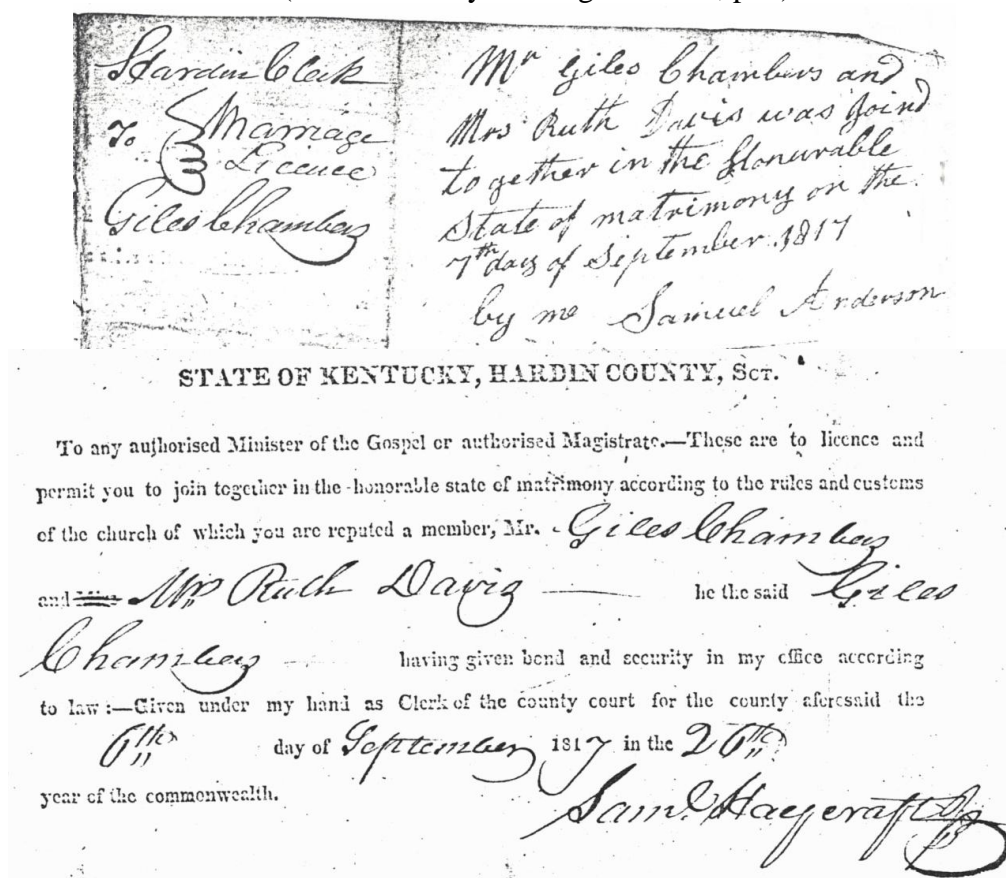 Hardin Clerk
To Marriage
Licence
Giles Chambers
Mr Giles Chambers and
Mrs Ruth Davis was Joind
together in the Honurable
State of matrimony on the
7th day of September 1817
by me Samuel Anderson
STATE OF KENTUCKY, HARDIN COUNTY, SCT.
To any authorised Minister of the Gospel or authorised Magistrate.—These are to licence and
permit you to join together in the honorable state of matrimony according to the rules and customs
of the church of which you are reputed a member, Mr. Giles Chambers
and Mrs Ruth Davis he the said Giles
Chambers having given bond and security in my office according
to law:—Given under my hand as Clerk of the county court for the county aforesaid the
6th day of September 1817 in the 26th
year of the commonwealth.
Saml Haycraft Jr